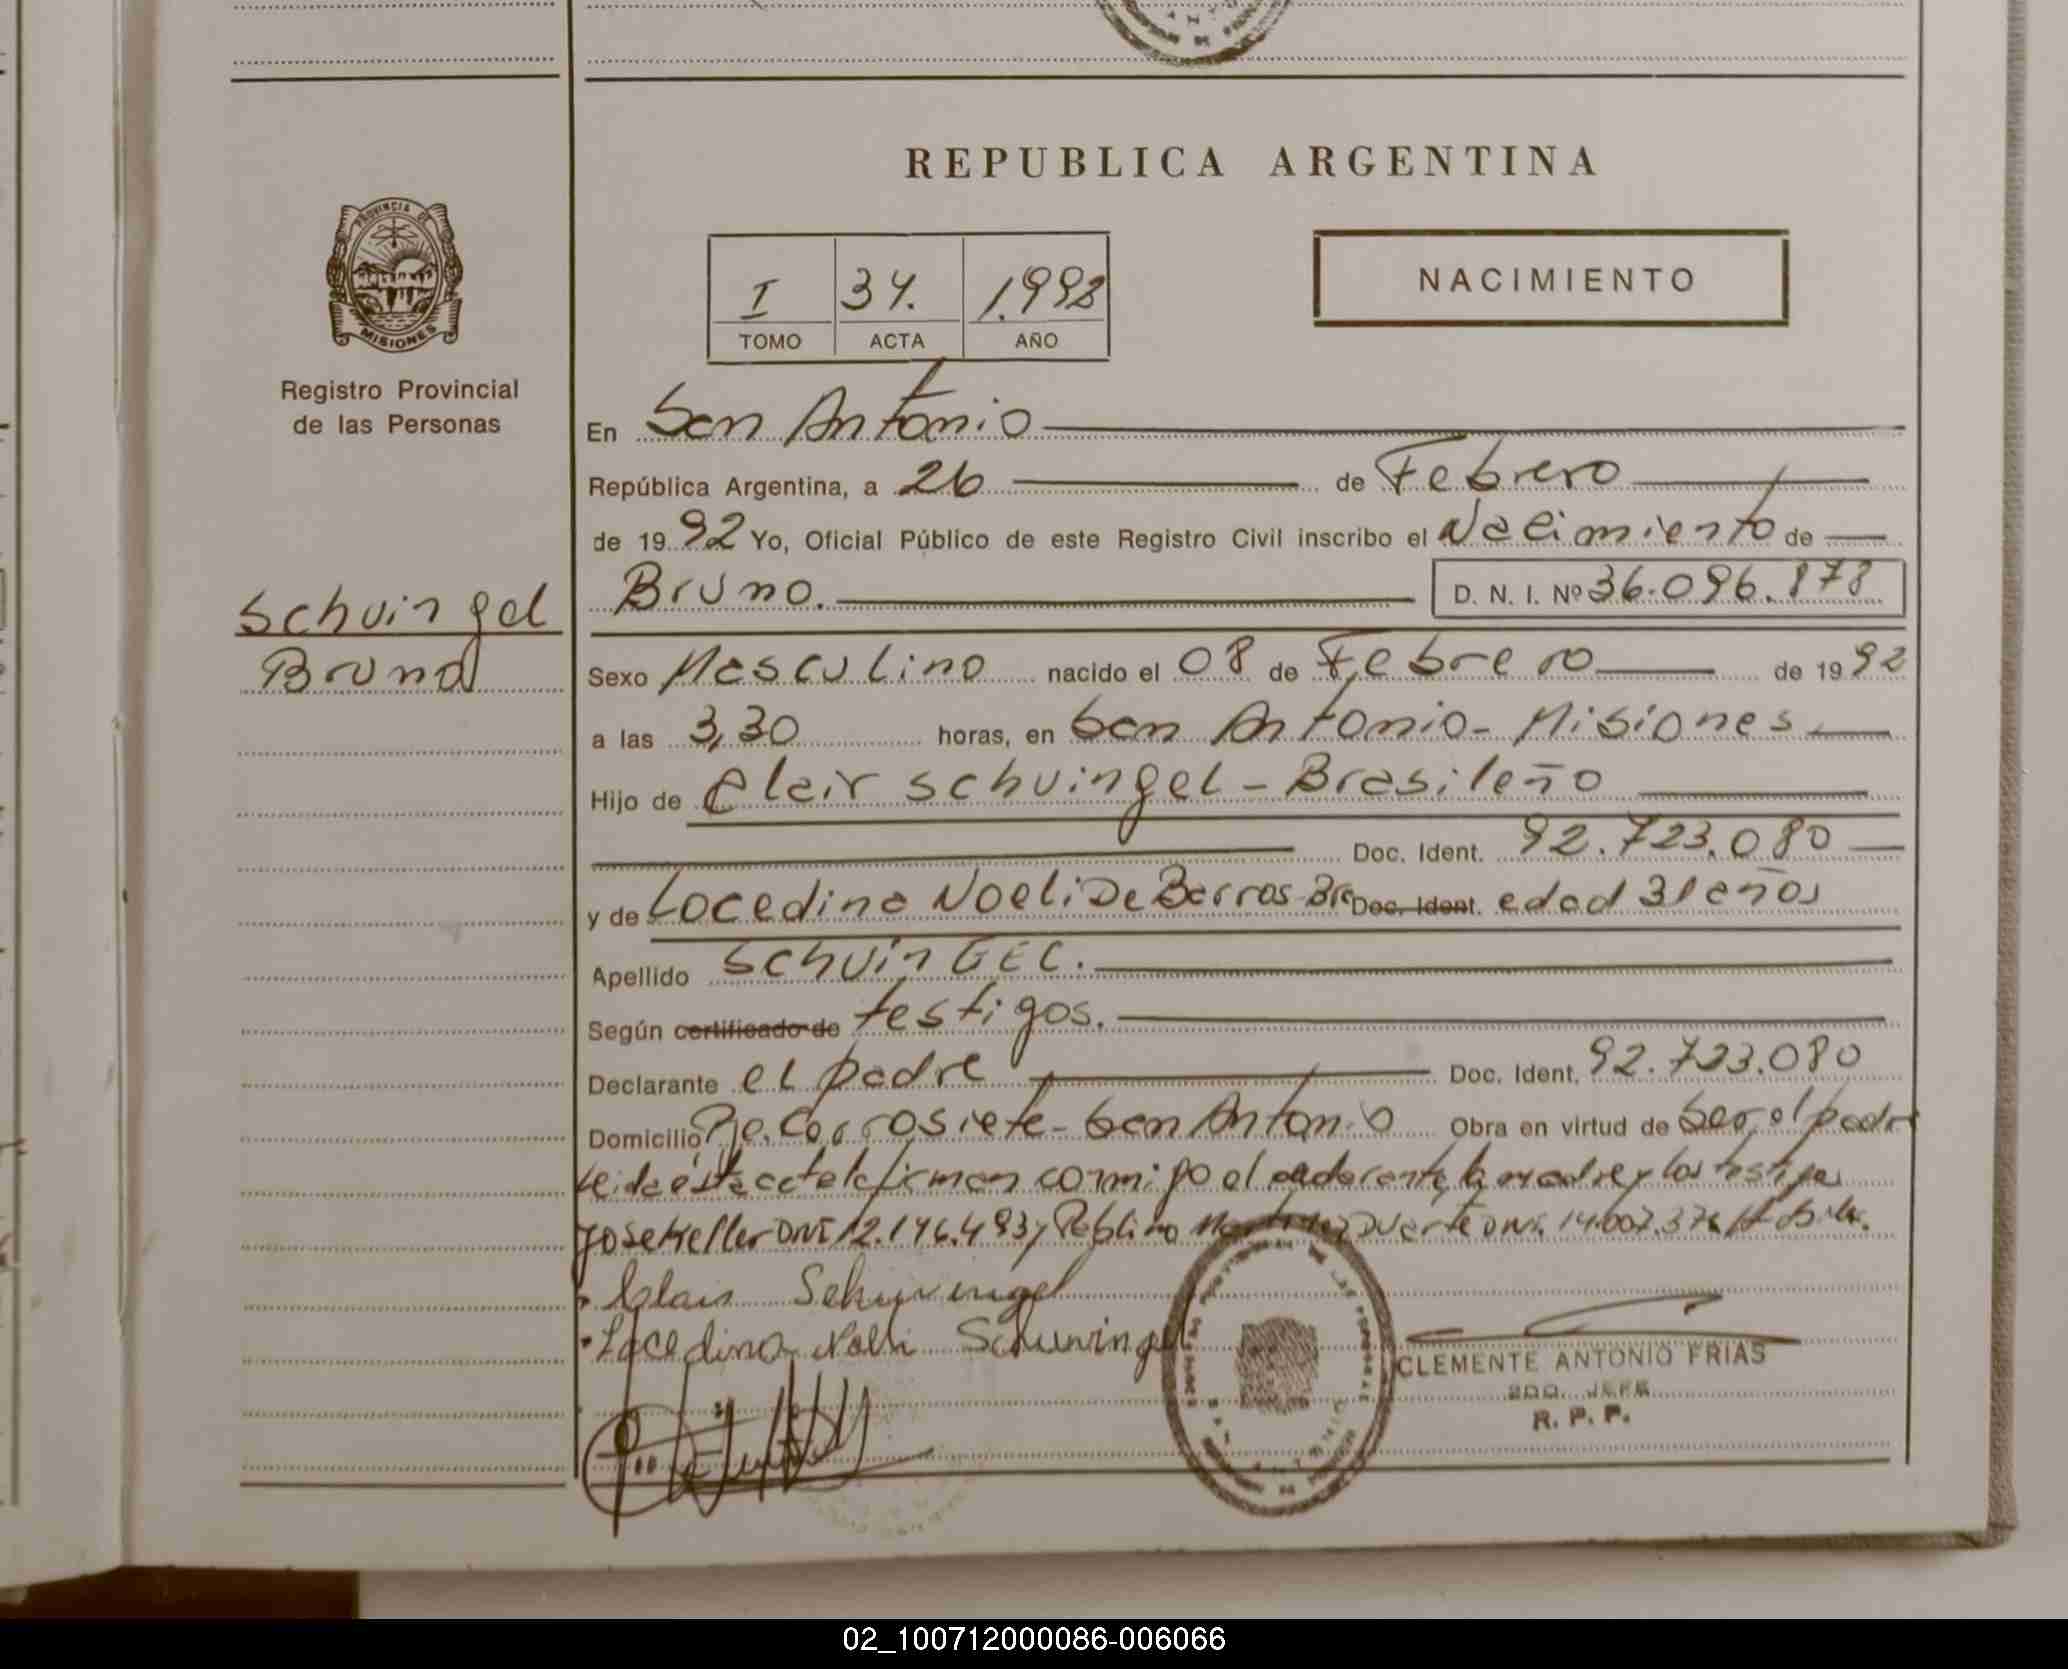 REPUBLICA ARGENTINA
PROVINCIA DE
MISIONES
Registro Provincial
de las Personas
I 34. 1.992
TOMO ACTA AÑO
NACIMIENTO
En San Antonio
República Argentina, a 26 de Febrero
de 1992 Yo, Oficial Público de este Registro Civil inscribo el Nacimiento de
Bruno. D. N. I. Nº 36.096.878
Schvingel
Bruno
Sexo Masculino nacido el 08 de Febrero de 1992
a las 3,30 horas, en San Antonio - Misiones
Hijo de Clair Schvingel - Brasileño
Doc. Ident. 92.723.080
y de Locedina Noeli De Barros - Bra Doc. Ident. edad 31 años
Apellido SchvinGEL.
Según certificado de testigos.
Declarante el padre Doc. Ident. 92.723.080
Domicilio Pje. Corrosiete - San Antonio Obra en virtud de ser el padre
Leida ésta acta la firman conmigo el declarante, la madre y los testigos
Jose Keller DNI 12.146.493 y Pablino Martinez Duarte DNI. 14.007.376
Clair Schuvingel
Locedina Noeli Schuvingel
CLEMENTE ANTONIO FRIAS
2DO. JEFE
R. P. P.
02_100712000086-006066